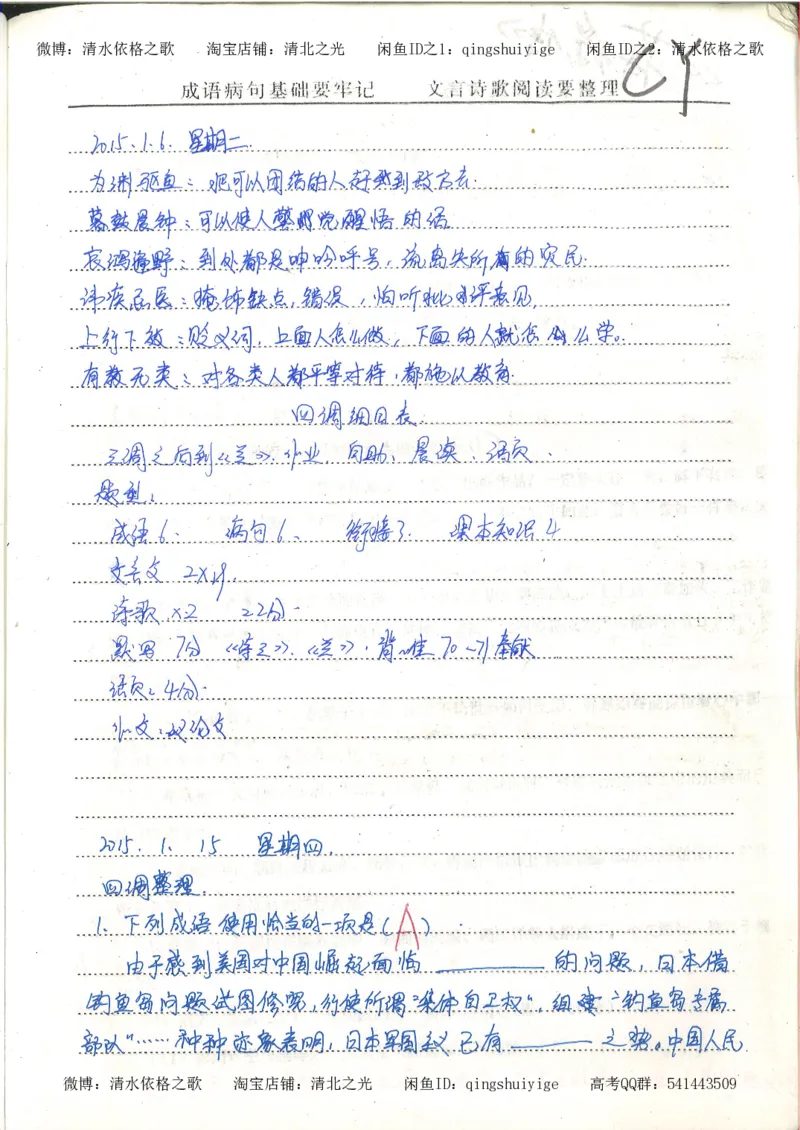 微博：清水依格之歌 淘宝店铺：清北之光 闲鱼ID之1：qingshuiyige 闲鱼ID之2：清水依格之歌
成语病句基础要牢记 文言诗歌阅读要整理
2015.1.6. 星期二
为渊驱鱼：把可以团结的人赶到敌方去.
暮鼓晨钟：可以使人警觉醒悟的话
哀鸿遍野：到处都是呻吟呼号，流离失所的灾民.
讳疾忌医：掩饰缺点,错误，怕听批评意见,
上行下效：贬义词，上面人怎么做，下面的人就怎么学。
有教无类：对各类人都平等对待，都施以教育.
四调细目表.
三调之后到《兰》.作业.自助、晨读.语页.
题型：
成语6. 病句6、 衔接3. 课本知识4
文言文 2×19.
诗歌×2 22分.
默写 7分 《兰》. 70~71奉献
语页：4分.
作文：议论文
2015. 1. 15 星期四.
四调整理.
1. 下列成语使用恰当的一项是(A)
由于感到美国对中国崛起面临 的问题，日本借
钓鱼岛问题试图修宪，行使所谓"集体自卫权"，组建"钓鱼岛专属
部队"……种种迹象表明，日本军国主义已有 之势。中国人民
微博：清水依格之歌 淘宝店铺：清北之光 闲鱼ID：qingshuiyige 高考QQ群：541443509